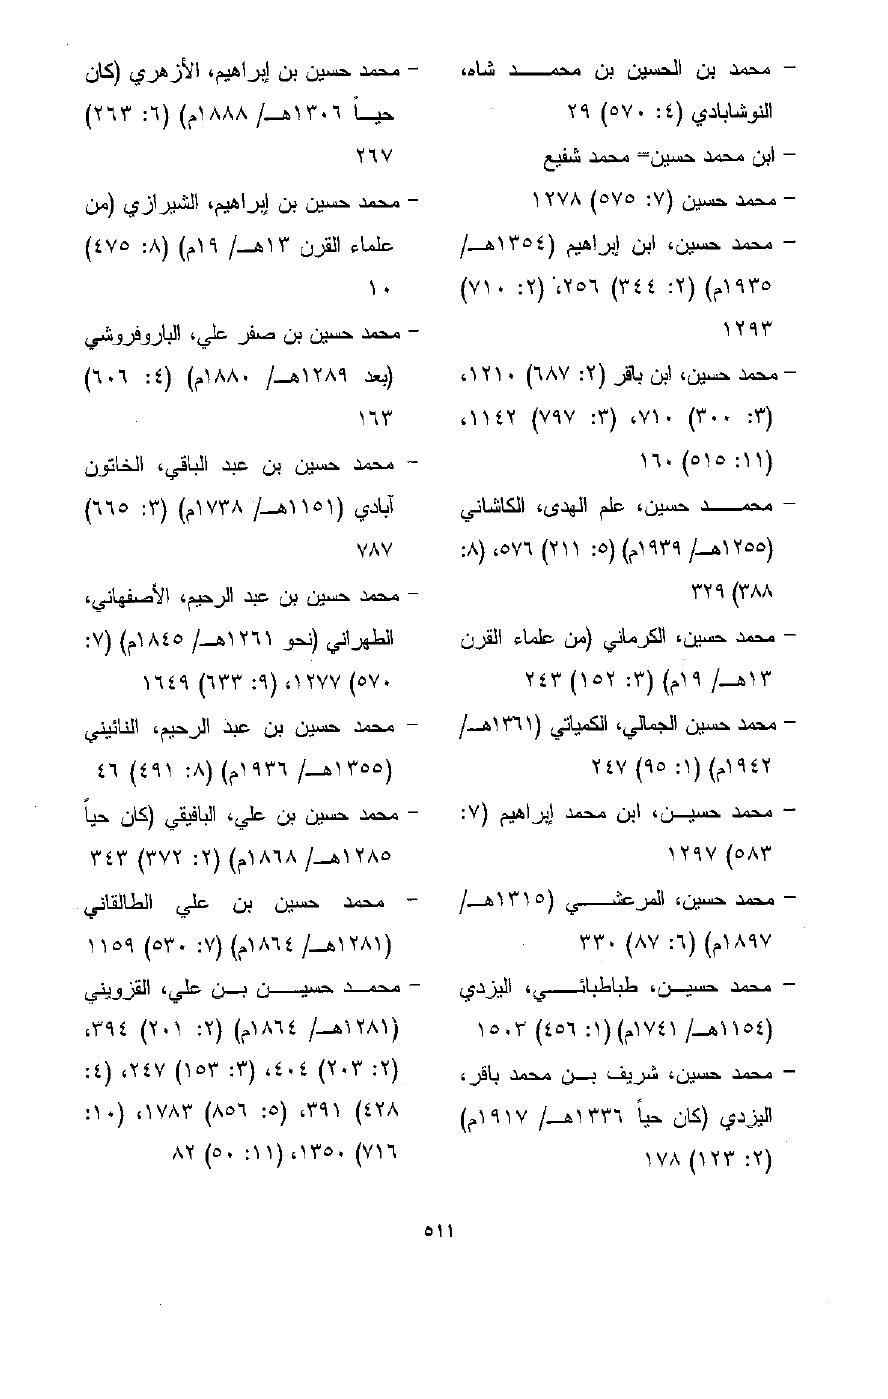 - محمد بن الحسين بن محمـــد شاه،
النوشابادي (٤: ٥٧٠) ٢٩
- ابن محمد حسين= محمد شفيع
- محمد حسين (٧: ٥٧٥) ١٢٧٨
- محمد حسين، ابن إبراهيم (١٣٥٤هـ/
١٩٣٥م) (٢: ٣٤٤) ٢٥٦، (٢: ٧١٠)
١٢٩٣
- محمد حسين، ابن باقر (٢: ٦٨٧) ١٢١٠،
(٣: ٣٠٠) ٧١٠، (٣: ٧٩٧) ١١٤٢،
(١١: ٥١٥) ١٦٠
- محمـــد حسين، علم الهدى، الكاشاني
(١٢٥٥هـ/ ١٩٣٩م) (٥: ٢١١) ٥٧٦، (٨:
٣٨٨) ٣٢٩
- محمد حسين، الكرماني (من علماء القرن
١٣هـ/ ١٩م) (٣: ١٥٢) ٢٤٣
- محمد حسين الجمالي، الكمياتي (١٣٦١هـ/
١٩٤٢م) (١: ٩٥) ٢٤٧
- محمد حسيـن، ابن محمد إبراهيم (٧:
٥٨٣) ١٢٩٧
- محمد حسين، المرعشـــي (١٣١٥هـ/
١٨٩٧م) (٦: ٨٧) ٣٣٠
- محمد حسيـن، طباطبائـــي، اليزدي
(١١٥٤هـ/ ١٧٤١م) (١: ٤٥٦) ١٥٠٣
- محمد حسين، شريف بـن محمد باقر،
اليزدي (كان حياً ١٣٣٦هـ/ ١٩١٧م)
(٢: ١٢٣) ١٧٨
- محمد حسين بن إبراهيم، الأزهري (كان
حيـاً ١٣٠٦هـ/ ١٨٨٨م) (٦: ٢٦٣)
٢٦٧
- محمد حسين بن إبراهيم، الشيرازي (من
علماء القرن ١٣هـ/ ١٩م) (٨: ٤٧٥)
١٠
- محمد حسين بن صفر علي، الباروفروشي
(بعد ١٢٨٩هـ/ ١٨٨٠م) (٤: ٦٠٦)
١٦٣
- محمد حسين بن عبد الباقي، الخاتون
آبادي (١١٥١هـ/ ١٧٣٨م) (٣: ٦٦٥)
٧٨٧
- محمد حسين بن عبد الرحيم، الأصفهاني،
الطهراني (نحو ١٢٦١هـ/ ١٨٤٥م) (٧:
٥٧٠) ١٢٧٧، (٩: ٦٣٣) ١٦٤٩
- محمد حسين بن عبد الرحيم، النائيني
(١٣٥٥هـ/ ١٩٣٦م) (٨: ٤٩١) ٤٦
- محمد حسين بن علي، البافيقي (كان حياً
١٢٨٥هـ/ ١٨٦٨م) (٢: ٣٧٢) ٣٤٣
- محمد حسين بن علي الطالقاني
(١٢٨١هـ/ ١٨٦٤م) (٧: ٥٣٠) ١١٥٩
- محمـد حسيـــن بـن علي، القزويني
(١٢٨١هـ/ ١٨٦٤م) (٢: ٢٠١) ٣٩٤،
(٢: ٢٠٣) ٤٠٤، (٣: ١٥٣) ٢٤٧، (٤:
٤٢٨) ٣٩١، (٥: ٨٥٦) ١٧٨٣، (١٠:
٧١٦) ١٣٥٠، (١١: ٥٠) ٨٢
٥١١